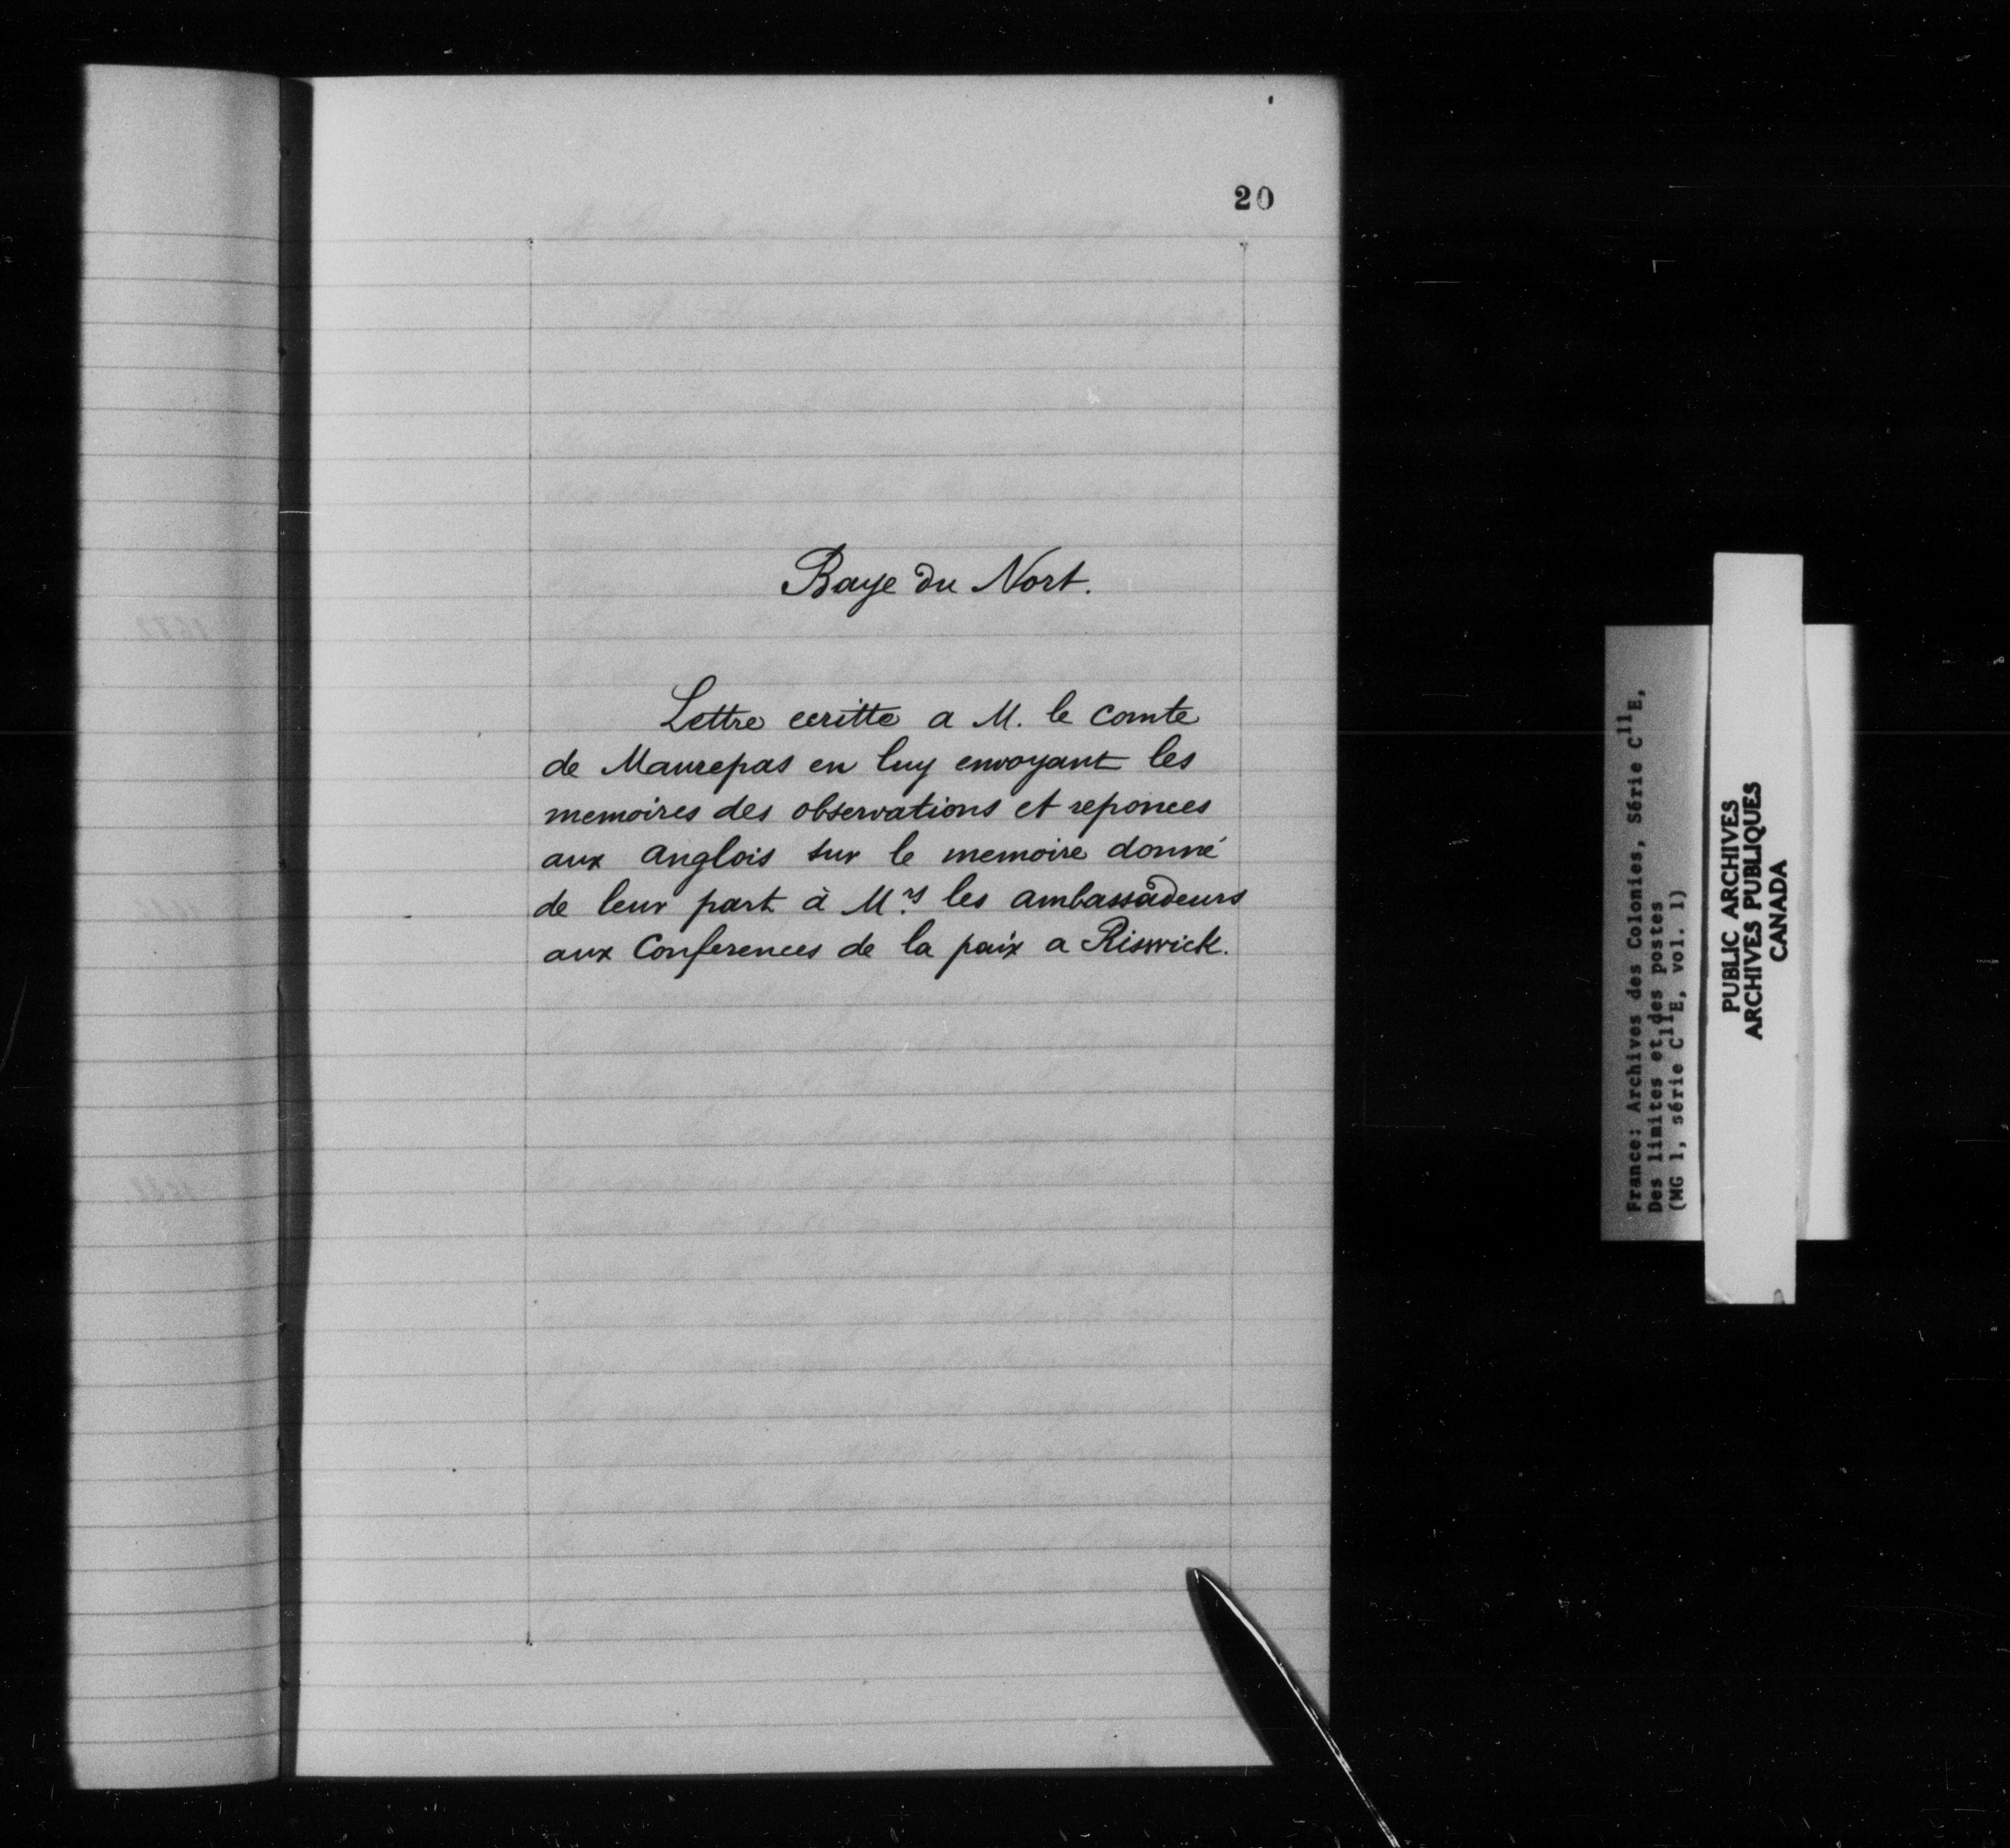 20
Baye du Nort.
Lettre ecritte a M. le comte
de Maurepas en luy envoyant les
memoires des observations et reponces
aux anglois sur le memoire donné
de leur part à M.rs les ambassadeurs
aux Conferences de la paix a Riswick.
France: Archives des Colonies, Série C11E,
Des limites et des postes
(MG 1, série C11E, vol. 1)
PUBLIC ARCHIVES
ARCHIVES PUBLIQUES
CANADA